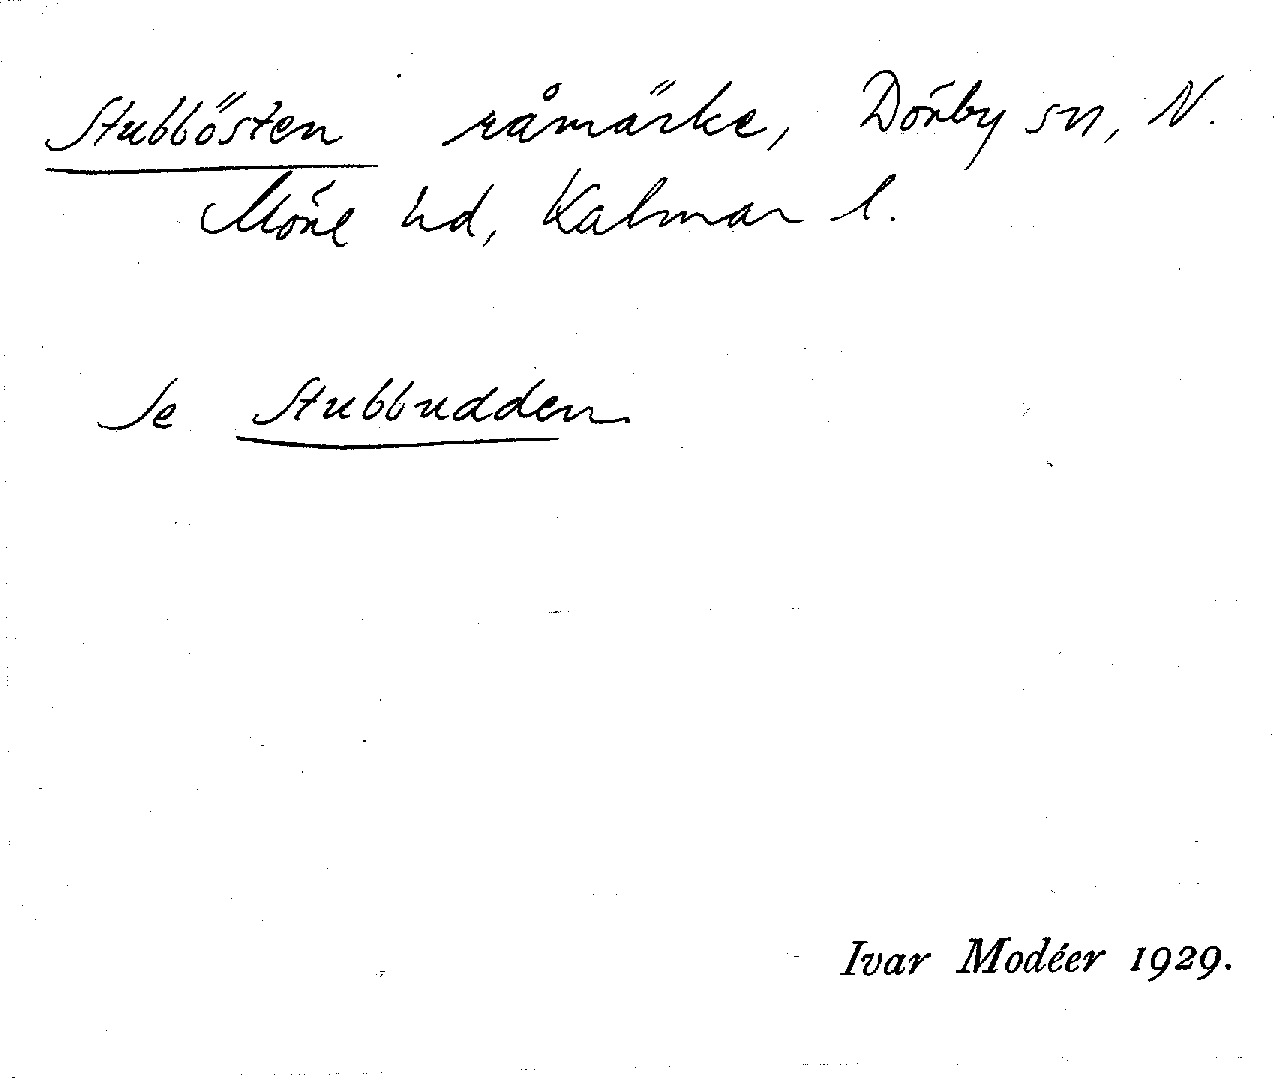 Stubbösten råmärke, Dörby sn, N.
Möre hd, Kalmar l.
Se Stubbudden.
Ivar Modéer 1929.